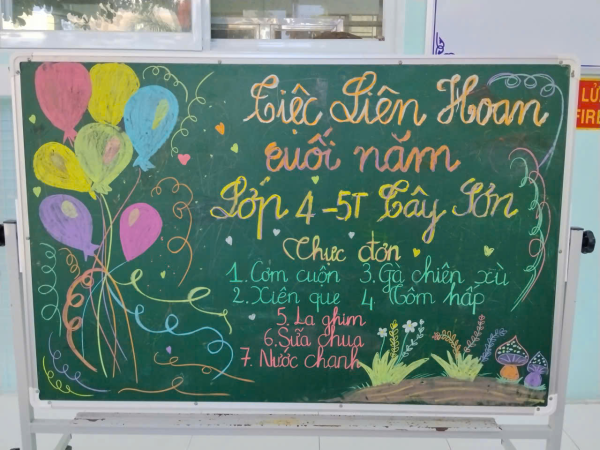 Tiệc Liên Hoan
cuối năm
Lớp 4-5T Tây Sơn
Thực đơn
1. Cơm cuộn 3. Gà chiên xù
2. Xiên que 4. Tôm hấp
5. La ghim
6. Sữa chua
7. Nước chanh
LỬ
FIRE